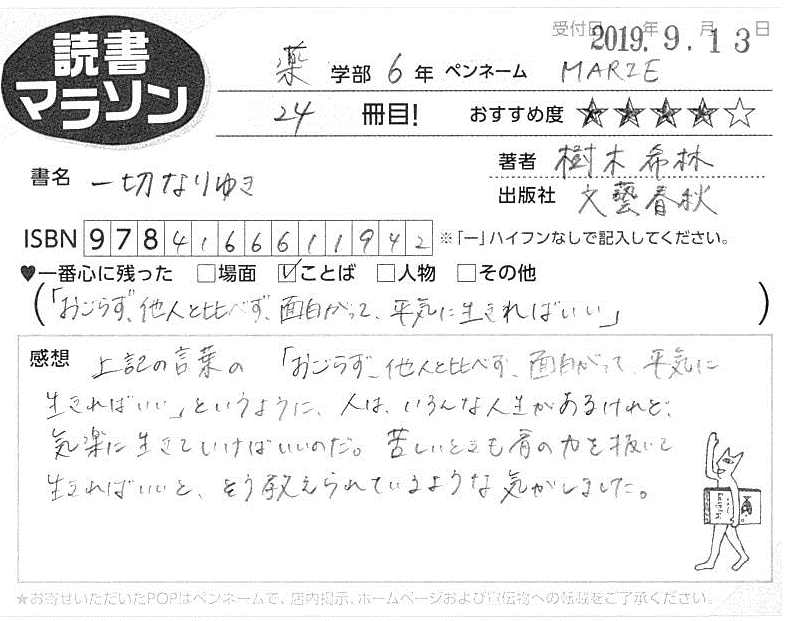 受付日 2019年9月13日
読書マラソン
薬 学部 6 年 ペンネーム MARZE
24 冊目! おすすめ度 ★★★★☆
書名 一切なりゆき
著者 樹木希林
出版社 文藝春秋
ISBN 9784166611942 ※「-」ハイフンなしで記入してください。
♥一番心に残った □場面 ☑ことば □人物 □その他
(「おごらず、他人と比べず、面白がって、平気に生きればいい」)
感想 上記の言葉の 「おごらず、他人と比べず、面白がって、平気に
生きればいい」というように、人は、いろんな人生があるけれど、
気楽に生きていけばいいのだ。苦しいときも肩の力を抜いて
生きればいいと、そう教えられているような気がしました。
★お寄せいただいたPOPはペンネームで、店内掲示、ホームページおよび宣伝物への転載をご了承ください。